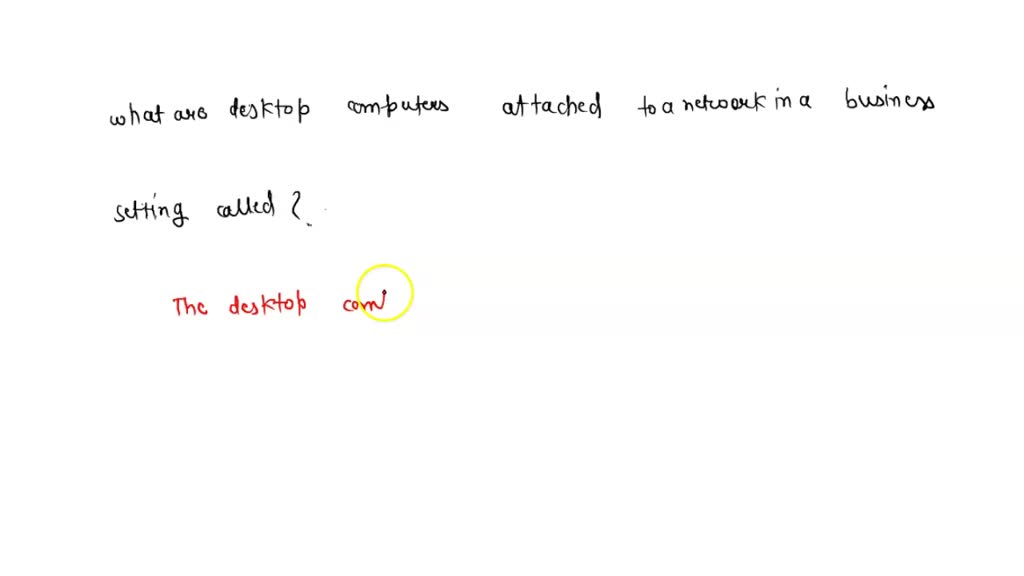 what are desktop computers attached to a network in a business
setting called ?
The desktop com